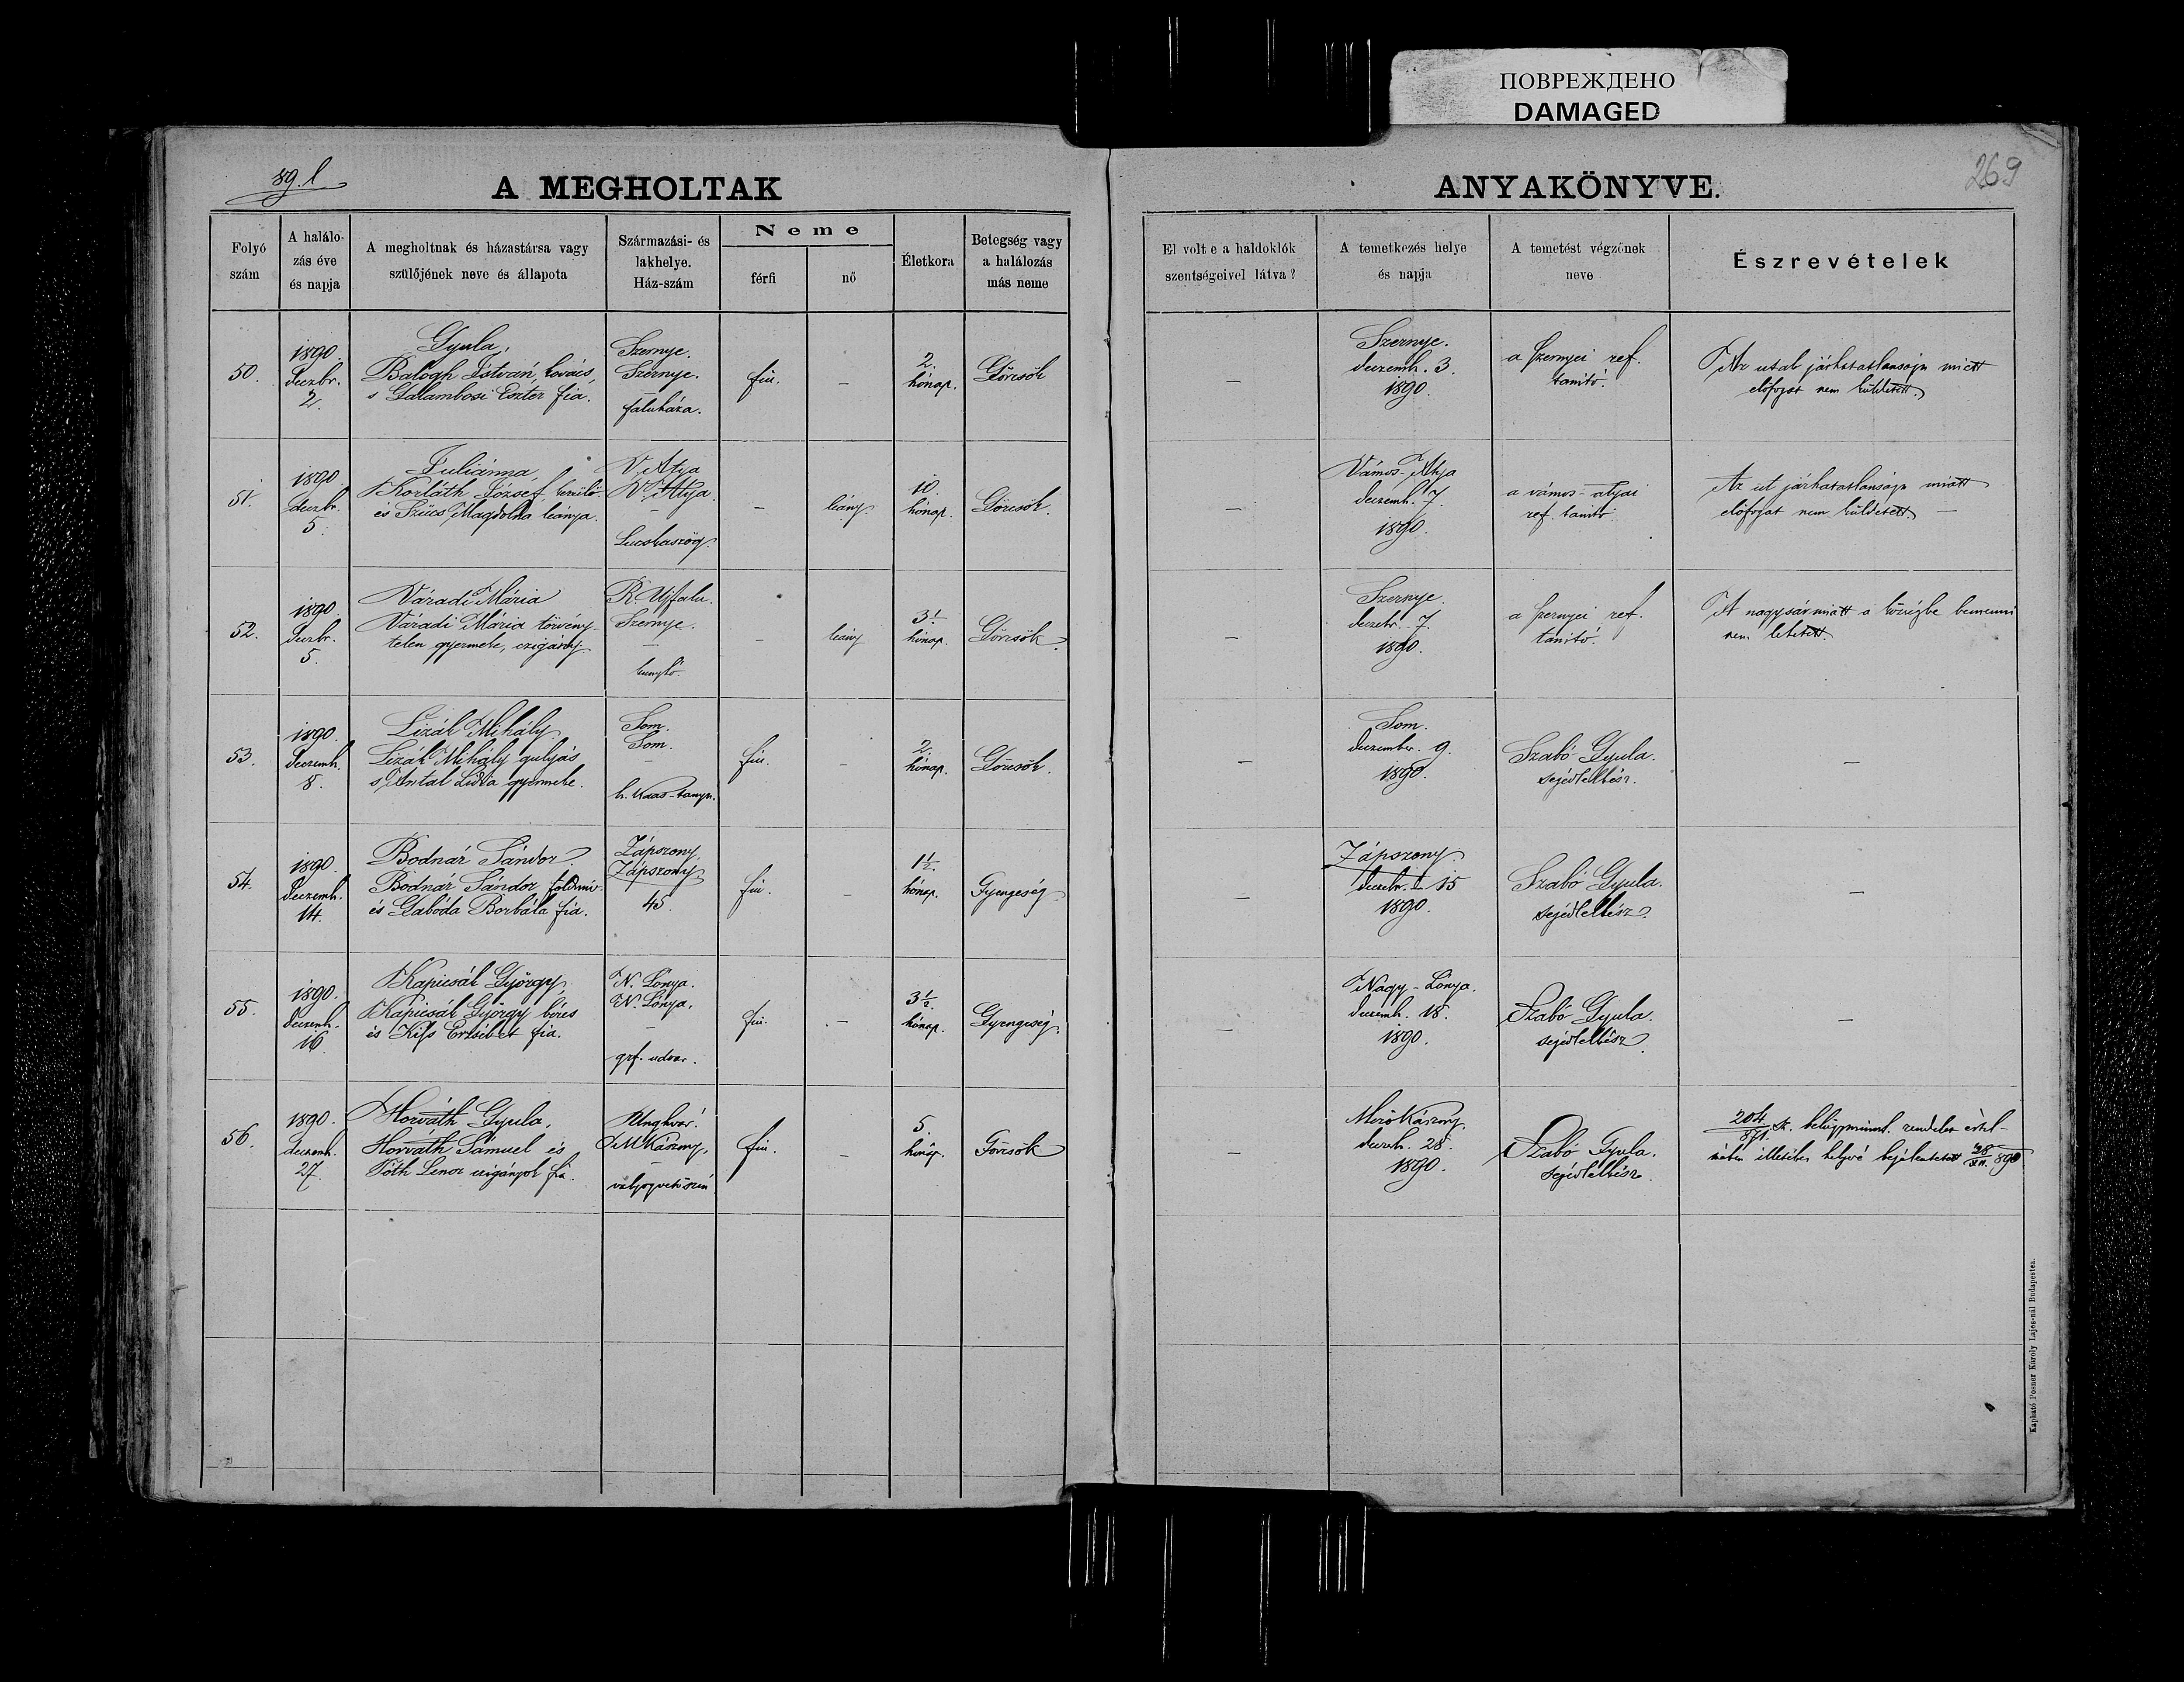 ПОВРЕЖДЕНО
DAMAGED
89. l
A MEGHOLTAK
Folyó szám
A halálo-zás éve és napja
A megholtnak és házastársa vagy szülőjének neve és állapota
Származási- és lakhelye. Ház-szám
Neme
férfi
nő
Életkora
Betegség vagy a halálozás más neme
50.
1890.
deczbr.
2.
Gyula,
Balogh István, kovács,
s Galambosi Eszter fia.
Szernye.
Szernye.
faluháza.
fiu.
–
2.
hónap.
Görcsök
51.
1890.
deczbr.
5.
Juliánna,
Korláth József
és Szűcs Magdolna leánya.
V. Atya
V. Atya.
–
Lucskaszög.
–
leány
10.
hónap.
Görcsök.
52.
1890.
deczbr.
5.
Váradi Mária
Váradi Mária törvény-
telen gyermeke, czigány.
R. Ujfalu.
Szernye.
–
kunyhó.
–
leány
hónap.
Görcsök.
53.
1890.
deczemb.
8.
Lizák Mihály
Lizák Mihály gulyás
s Antal Lidia gyermeke.
Som.
Som.
–
fiu.
–
2.
hónap.
Görcsök.
54.
1890.
deczemb.
14.
Bodnár Sándor.
Bodnár Sándor földmiv.
és Gabóda Borbála fia.
Zápszony,
Zápszony
45.
fiu.
–
1½
hónap.
Gyengeség
55.
1890.
deczemb.
16
Kapicsák György,
Kapicsák György béres
és Kiss Erzsébet fia.
N. Lónya.
N. Lónya.
–
grf. udvar.
fiu.
–
3½
hónap.
Gyengeség.
56.
1890.
deczemb.
27.
Horváth Gyula,
Horváth Sámuel és
Tóth Lenor czigányok fia.
Unghvár.
M Kászony,
–
fiu.
–
5.
hónap.
Görcsök
ANYAKÖNYVE.
269
El volt e a haldoklók szentségeivel látva?
A temetkezés helye és napja
A temetést végzőnek neve
Észrevételek
–
Szernye.
deczemb. 3.
1890.
a szernyei ref.
tanitó.
Az utak járhatatlansága miatt
előfogat nem küldetett.
–
Vámos-Atya
deczemb. 7.
1890.
a vámos-atyai
ref. tanitó
Az ut járhatatlansága miatt
előfogat nem küldetett –
–
Szernye.
deczbr. 7.
1890.
a szernyei ref.
tanitó.
A nagy sár miatt a községbe bemenni
nem lehetett.
–
Som.
deczember. 9.
1890.
Szabó Gyula.
segédlelkész.
–
–
Zápszony.
deczbr. 15
1890.
Szabó Gyula.
segédlelkész.
–
–
Nagy-Lónya.
deczemb. 18.
1890.
Szabó Gyula.
segédlelkész
–
–
Mező Kászony.
deczb. 28.
1890.
Szabó Gyula.
segédlelkész.
204/871. sz. belügyminist. rendelet értel-
mében illetékes helyre bejelentetett 28/XII. 890
Kapható Posner Karoly Lajos-nál Budapesten.